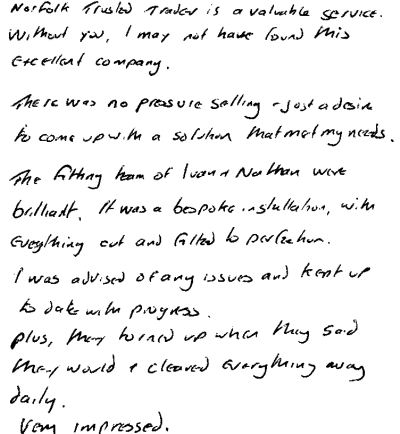 Norfolk Trusted Trader is a valuable service.
Without you, I may not have found this
excellent company.
There was no pressure selling - just a desire
to come up with a solution that met my needs.
The fitting team of Ivan & Nathan were
brilliant. It was a bespoke installation, with
everything cut and fitted to perfection.
I was advised of any issues and kept up
to date with progress.
plus, they turned up when they said
they would & cleared everything away
daily.
Very impressed.